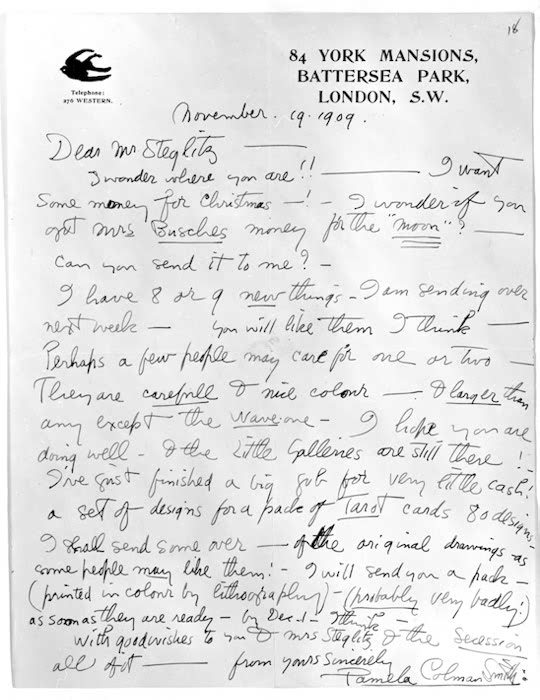 18
84 YORK MANSIONS,
BATTERSEA PARK,
LONDON, S.W.
Telephone:
276 WESTERN.
November. 19. 1909.
Dear Mr Steglitz —
I wonder where you are!! — I want
some money for Christmas —! — I wonder if you
got Mrs Busches money for the "moon"? —
can you send it to me? —
I have 8 or 9 new things — I am sending over
next week — you will like them I think —
Perhaps a few people may care for one or two —
They are carefull & nice colour — & larger than
any except the Wave one — I hope you are
doing well — & the Little Galleries are still there!—
I've just finished a big job for very little cash!
a set of designs for a pack of Tarot cards 80 designs—
I shall send some over — of the original drawings — as
some people may like them! — I will send you a pack —
(printed in colour by lithography) — (probably very badly!)
as soon as they are ready — by Dec. 1 — I think —
with good wishes to you & Mrs Steglitz & the Secession
all of it — from yours sincerely
Pamela Colman Smith: